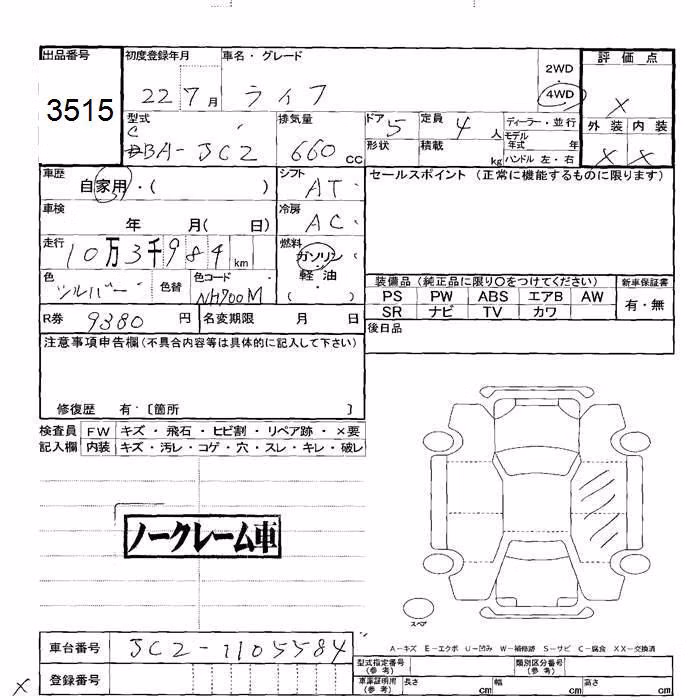 出品番号
3515
初度登録年月
22 7月
車名・グレード
ライフ
2WD
4WD
評価点
X
型式
CBA-JC2
排気量
660 cc
ドア
5
形状
定員
4 人
積載
kg
ディーラー・並行
モデル年式 年
ハンドル 左・右
外装 内装
X X
車歴
自家用・( )
シフト
AT
セールスポイント (正常に機能するものに限ります)
車検
年 月( 日)
冷房
AC
走行
10万3千984 km
燃料
ガソリン
軽油
( )
色
シルバー
色替
色コード
NH700M
装備品 (純正品に限り○をつけてください)
新車保証書
PS PW ABS エアB AW
SR ナビ TV カワ
有・無
R券 9380 円
名変期限 月 日
後日品
注意事項申告欄(不具合内容等は具体的に記入して下さい)
修復歴 有・〔箇所 〕
検査員
記入欄
FW キズ・飛石・ヒビ割・リペア跡・×要
内装 キズ・汚レ・コゲ・穴・スレ・キレ・破レ
ノークレーム車
スペア
車台番号
JC2-1105584
A-キズ E-エクボ U-凹み W-補修跡 S-サビ C-腐食 XX-交換済
X
登録番号
型式指定番号
(参考)
類別区分番号
(参考)
車庫証明用
(参考)
長さ cm 幅 cm 高さ cm